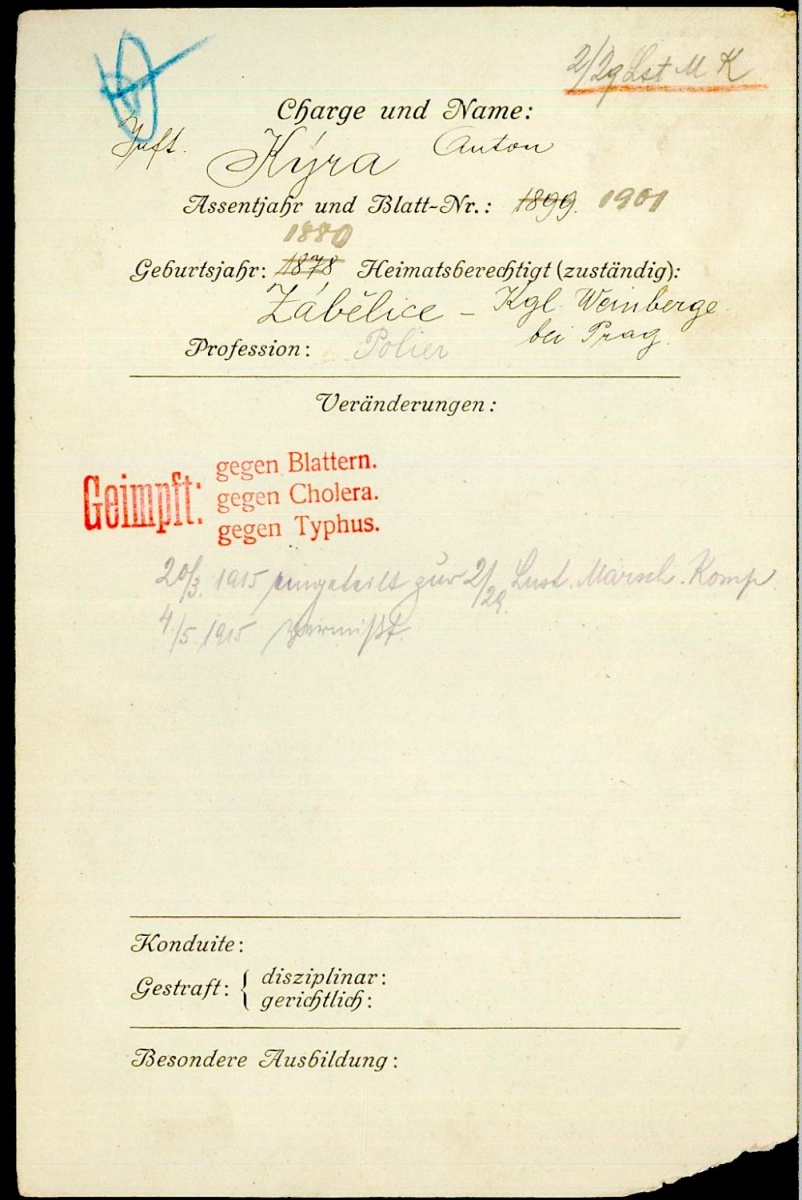 2/29 Lst M K
Charge und Name:
Inft. Kýra Anton
Assentjahr und Blatt-Nr.: 1899. 1901
1880
Geburtsjahr: 1878 Heimatsberechtigt (zuständig):
Zábělice – Kgl. Weinberge
bei Prag.
Profession: Polier
Veränderungen:
Geimpft: gegen Blattern.
gegen Cholera.
gegen Typhus.
20/3. 1915 eingeteilt zur 2/29. Lust. Marsch. Komp.
4/5 1915 vermißt.
Konduite:
Gestraft: { disziplinar:
gerichtlich:
Besondere Ausbildung: